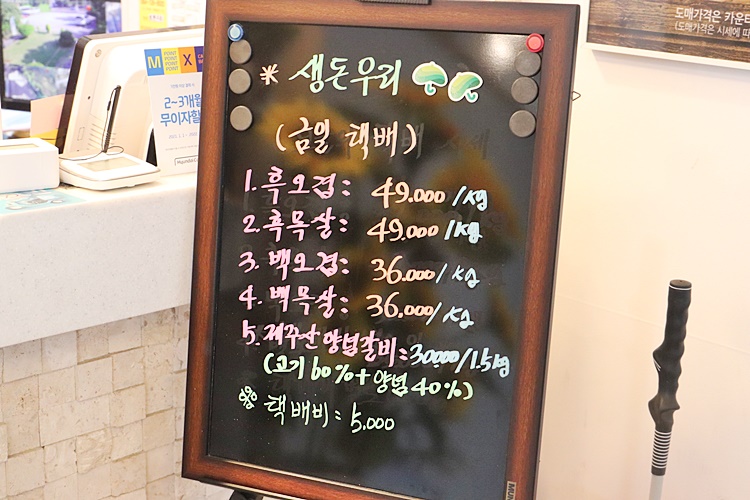 도매가격은 카운터
(도매가격은 시세에 따
M POINT X
2~3개월
무이자할
※ 생돈우리
(금일 택배)
1. 흑오겹: 49.000/kg
2. 흑목살: 49.000/kg
3. 백오겹: 36.000/kg
4. 백목살: 36,000/kg
5. 제주산양념갈비: 30000/1.5kg
(고기 60% + 양념 40%)
택배비: 5,000